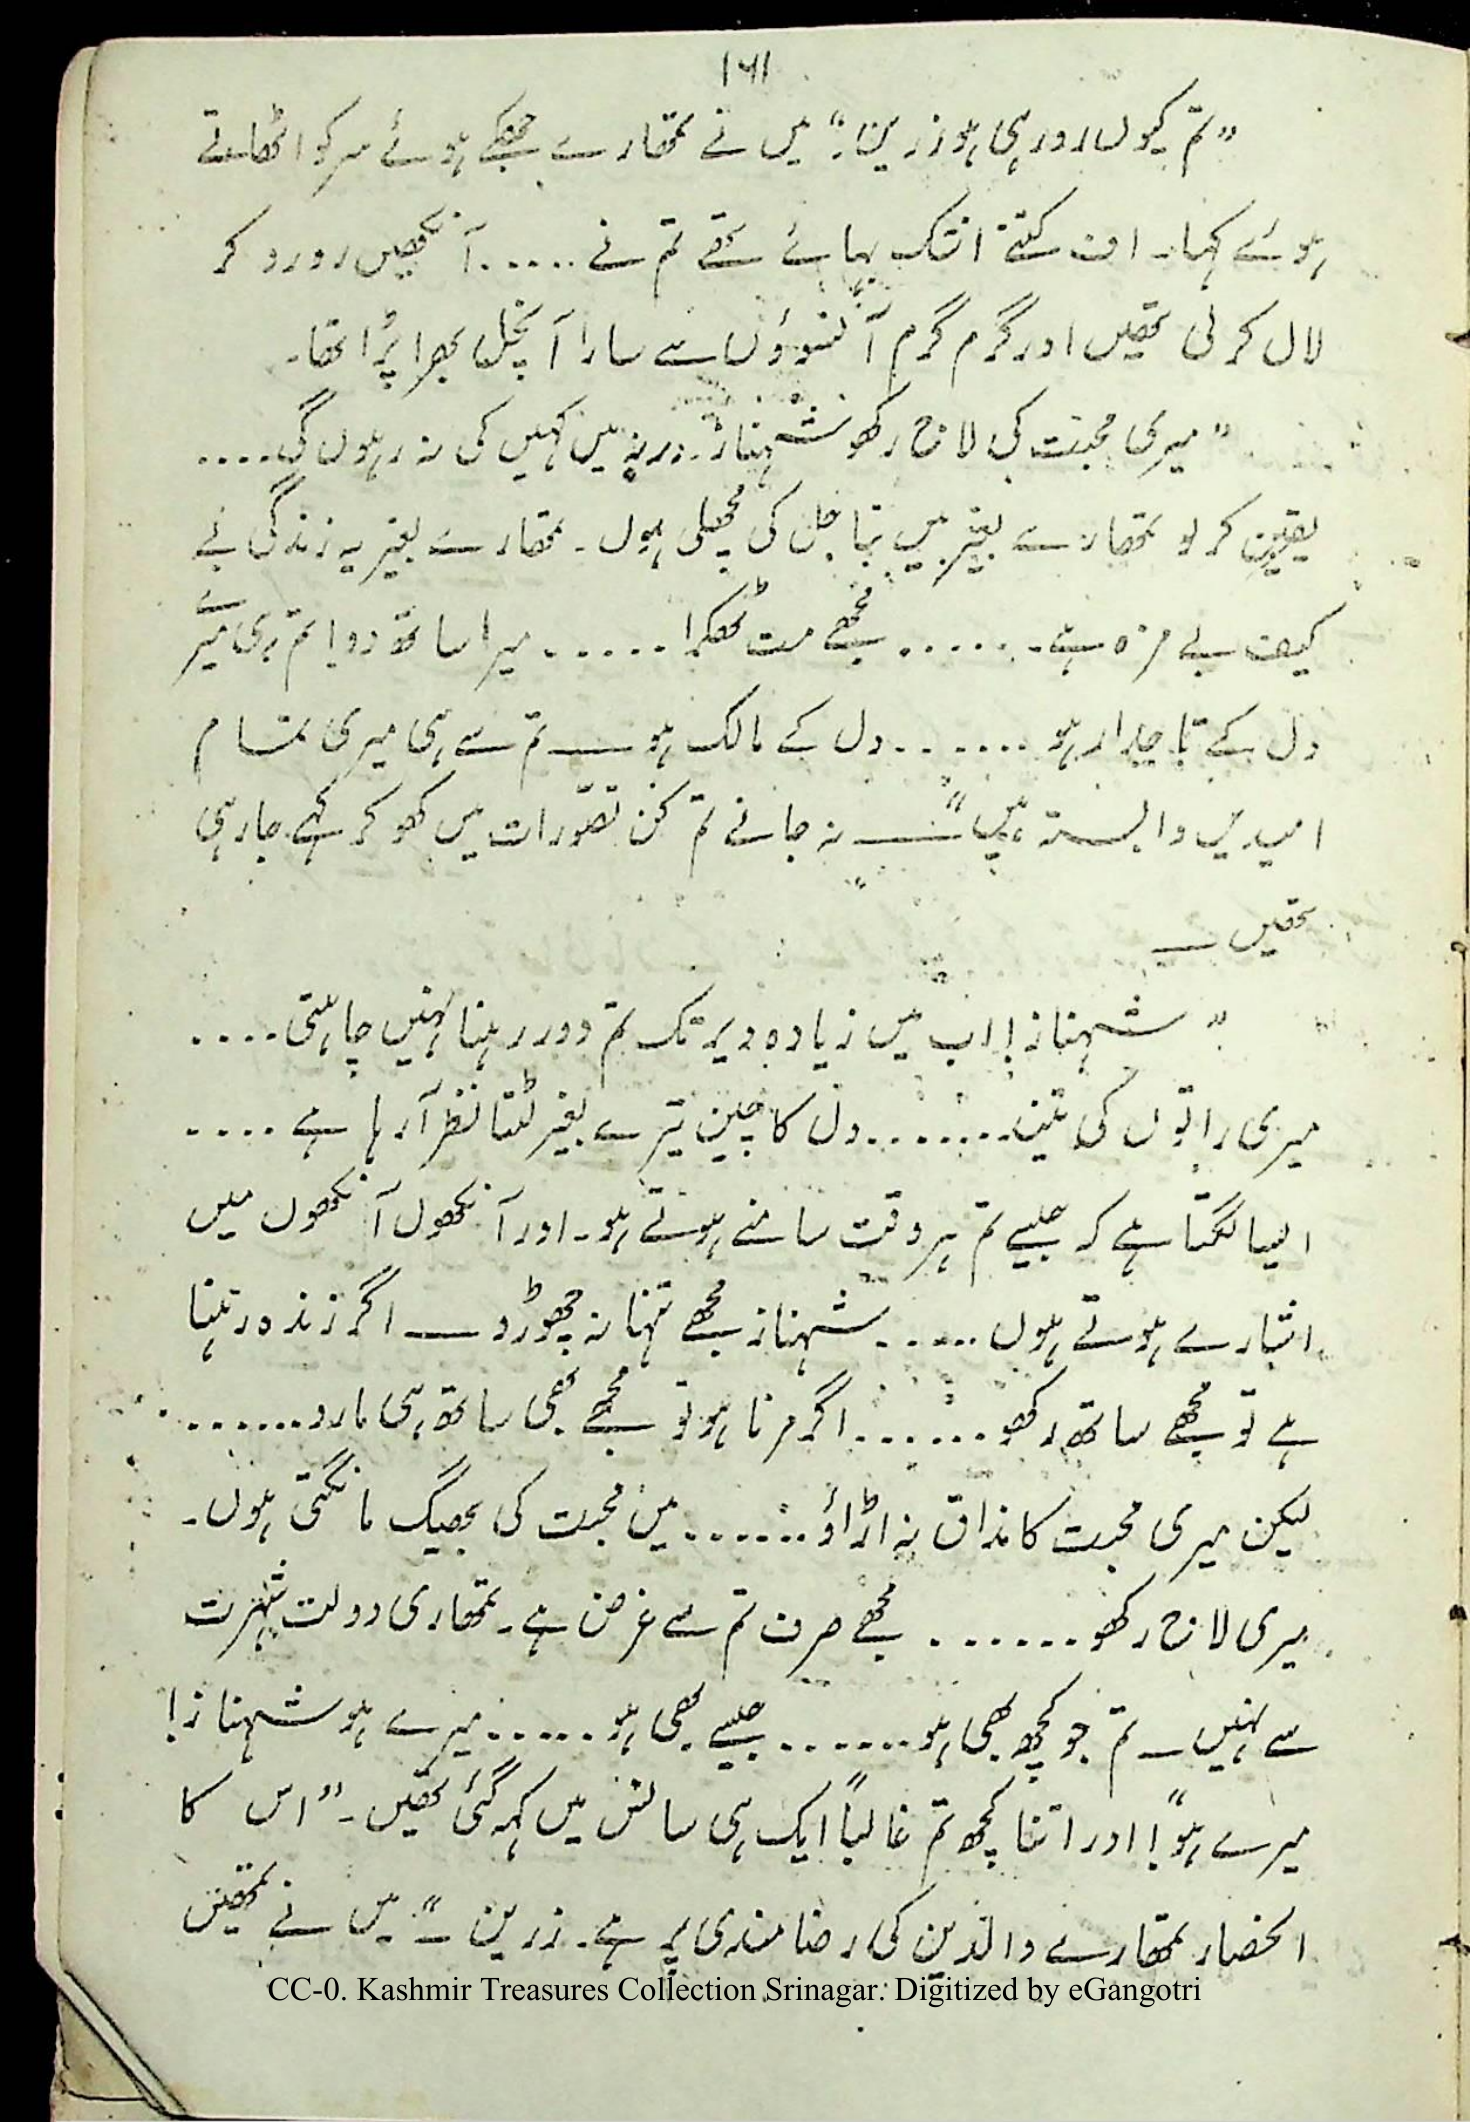 ۱۶۱
”تم کیوں رو رہی ہو زرین؟“ میں نے تمھارے جھکے ہوئے سر کو اٹھاتے
ہوئے کہا۔ اف کتنے اشک بہائے تھے تم نے ۔۔۔۔۔ آنکھیں رو رو کر
لال کر لی تھیں اور گرم گرم آنسوؤں سے سارا آنچل بھرا پڑا تھا۔
”میری محبت کی لاج رکھو شہناز۔ ورنہ میں کہیں کی نہ رہوں گی ۔۔۔۔
یقین کر لو تمھارے بغیر میں بنا جل کی مچھلی ہوں۔ تمھارے بغیر یہ زندگی بے
کیف بے مزہ ہے۔ ۔۔۔۔۔ مجھے مت ٹھکرا ۔۔۔۔۔ میرا ساتھ دو! تم ہی میرے
دل کے تاجدار ہو ۔۔۔۔۔۔ دل کے مالک ہو ــــ تم سے ہی میری تمام
امیدیں وابستہ ہیں“ ــــ نہ جانے تم کن تصورات میں کھو کر کہے جا رہی
تھیں ــــ
”شہناز! اب میں زیادہ دیر تک تم دور رہنا نہیں چاہتی ۔۔۔۔
میری راتوں کی نیند ۔۔۔۔۔۔۔ دل کا چین تیرے بغیر لٹتا نظر آ رہا ہے ۔۔۔۔
ایسا لگتا ہے کہ جیسے تم ہر وقت سامنے ہوتے ہو۔ اور آنکھوں آنکھوں میں
اشارے ہوتے ہوں ۔۔۔۔۔ شہناز مجھے تنہا نہ چھوڑو ــــ اگر زندہ رہنا
ہے تو مجھے ساتھ رکھو ۔۔۔۔۔۔ اگر مرنا ہو تو مجھے بھی ساتھ ہی مارو ۔۔۔۔۔۔۔
لیکن میری محبت کا مذاق نہ اڑاؤ ۔۔۔۔۔۔ میں محبت کی بھیگ مانگتی ہوں۔
میری لاج رکھو ۔۔۔۔۔۔ مجھے صرف تم سے غرض ہے۔ تمھاری دولت شہرت
سے نہیں ــ تم جو کچھ بھی ہو ۔۔۔۔۔۔ جیسے بھی ہو ۔۔۔۔۔ میرے ہو شہناز!
میرے ہو“! اور اتنا کچھ تم غالباً ایک ہی سانس میں کہہ گئی تھیں۔ ”اس کا
انحصار تمھارے والدین کی رضامندی پر ہے۔ زرین ــ“ میں نے تمھیں
CC-0. Kashmir Treasures Collection Srinagar. Digitized by eGangotri